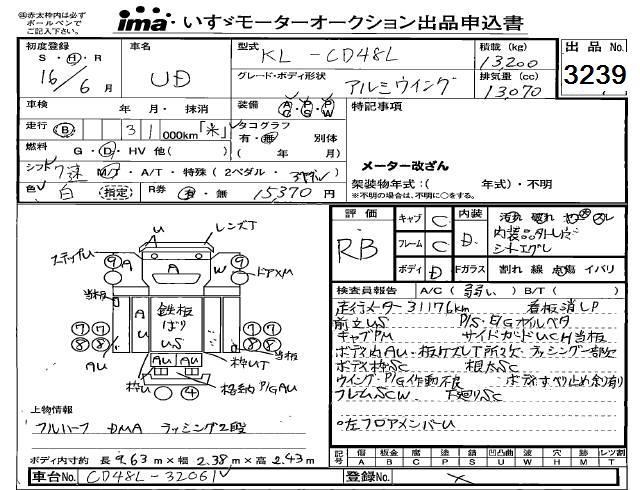 ㊟赤太枠内は必ず
ボールペンで
ご記入下さい。
ima いすゞモーターオークション出品申込書
初度登録 S・H・R 16/6月
車名 UD
型式 KL-CD48L
グレード・ボディ形状 アルミウイング
積載(kg) 13200
排気量(cc) 13070
出品No. 3239
車検 年 月・抹消
装備 AC PS PW
特記事項
走行 B 31 000km「米」
タコグラフ 有・無 別体
( 年 月)
燃料 G・D・HV 他( )
メーター改ざん
シフト 7速 MT・A/T・特殊(2ペダル・
架装物年式:( 年式)・不明
※不明の場合は、不明に○をする。
色 白 (指定) R券 有・無 15,370円
評価 RB
キャブ C 内装 D
フレーム C
ボディ D Fガラス 割れ 線 点傷 イバリ
シートエグレ
検査員報告 A/C(弱い) B/T( )
走行メーター31176km 看板消しP
前立US P/S・E/Gオイルベタ
キャブPM サイドガードUCH当板
ボディ枠SC 根太SC
ウイング・P/G作動不良
フレームSCW 下廻りSC
左フロアメンバーU
ステップU レンズT
A U W
⑨ A A ⑨ ドアXM
当板
鉄板ばり US
⑦⑦ ⑦⑦
⑧⑧ ⑧⑧ 当板
AU AU AU 枠UT
枠U ④ 格納P/G AU
上物情報
フルハーフ DMA ラッシング2段
ボディ内寸約 長9.63m×幅2.38m×高2.43m
記号 傷A 板金B 腐C 塗P 錆S 凹凸曲U 波W 穴H 跡M レツ割T
車台No. CD48L-32061
登録No.